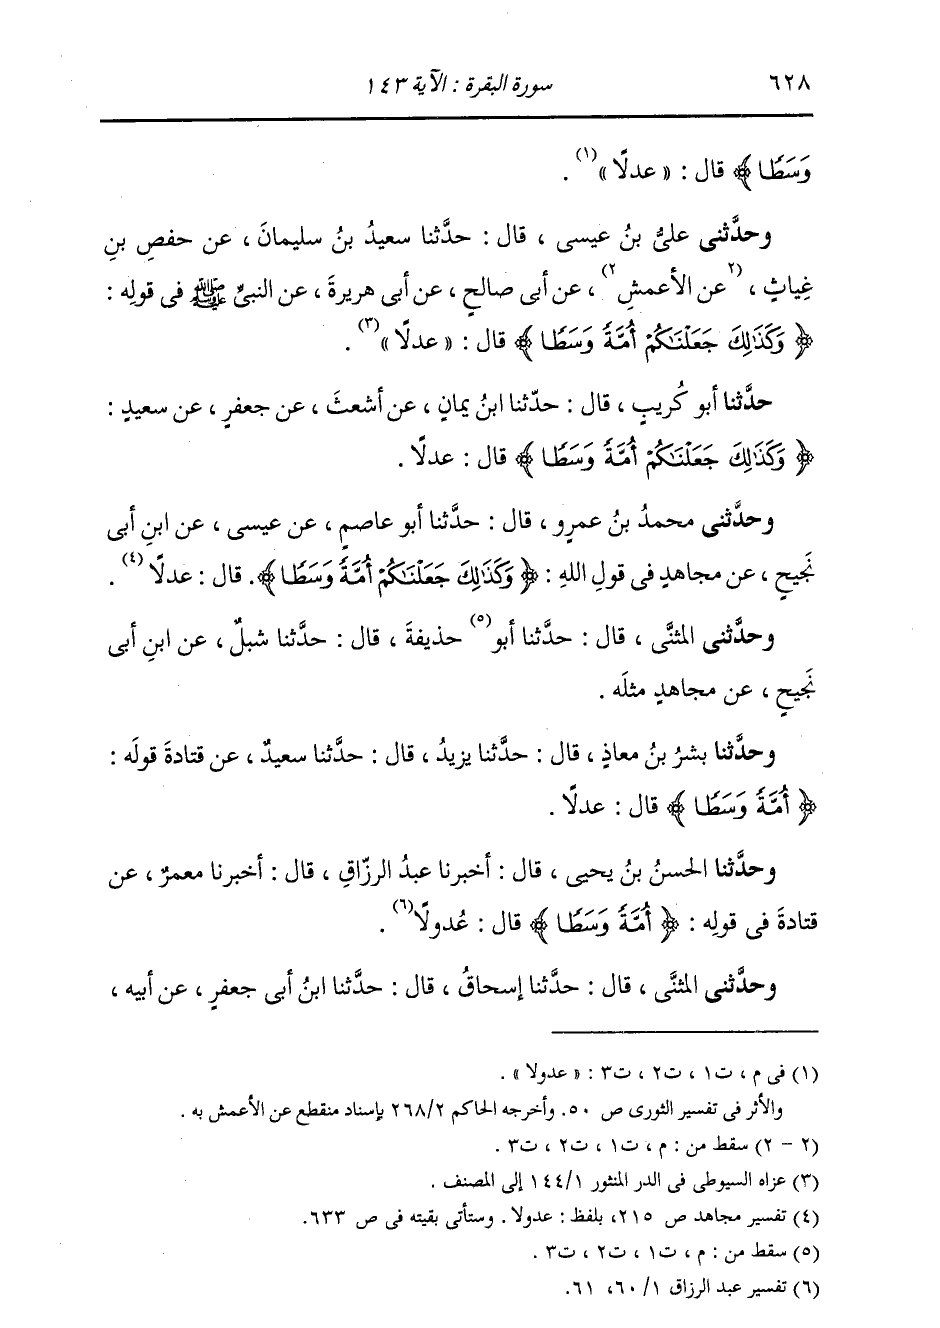 ٦٢٨ سورة البقرة : الآية ١٤٣
وَسَطًا ﴾ قال : « عدلًا »(١) .
وحدَّثنى علىُّ بنُ عيسى ، قال : حدَّثنا سعيدُ بنُ سليمانَ ، عن حفصِ بنِ
غِياثٍ ، (٢عن الأعمشِ٢) ، عن أبى صالحٍ ، عن أبى هريرةَ ، عن النبىِّ ﷺ فى قولِه :
﴿ وَكَذَٰلِكَ جَعَلْنَٰكُمْ أُمَّةً وَسَطًا ﴾ قال : « عدلًا »(٣) .
حدَّثنا أبو كُريبٍ ، قال : حدّثنا ابنُ يمانٍ ، عن أشعثَ ، عن جعفرٍ ، عن سعيدٍ :
﴿ وَكَذَٰلِكَ جَعَلْنَٰكُمْ أُمَّةً وَسَطًا ﴾ قال : عدلًا .
وحدَّثنى محمدُ بنُ عمرٍو ، قال : حدَّثنا أبو عاصمٍ ، عن عيسى ، عن ابنِ أبى
نَجيحٍ ، عن مجاهدٍ فى قولِ اللهِ : ﴿ وَكَذَٰلِكَ جَعَلْنَٰكُمْ أُمَّةً وَسَطًا ﴾. قال : عدلًا(٤) .
وحدَّثنى المثنَّى ، قال : حدَّثنا أبو(٥) حذيفةَ ، قال : حدَّثنا شبلٌ ، عن ابنِ أبى
نَجيحٍ ، عن مجاهدٍ مثلَه .
وحدَّثنا بشرُ بنُ معاذٍ ، قال : حدَّثنا يزيدُ ، قال : حدَّثنا سعيدٌ ، عن قتادةَ قولَه :
﴿ أُمَّةً وَسَطًا ﴾ قال : عدلًا .
وحدَّثنا الحسنُ بنُ يحيى ، قال : أخبرنا عبدُ الرزّاقِ ، قال : أخبرنا معمرٌ ، عن
قتادةَ فى قولِه : ﴿ أُمَّةً وَسَطًا ﴾ قال : عُدولًا(٦) .
وحدَّثنى المثنَّى ، قال : حدَّثنا إسحاقُ ، قال : حدَّثنا ابنُ أبى جعفرٍ ، عن أبيه ،
(١) فى م ، ت١ ، ت٢ ، ت٣ : « عدولا » .
والأثر فى تفسير الثورى ص ٥٠. وأخرجه الحاكم ٢٦٨/٢ بإسناد منقطع عن الأعمش به .
(٢ - ٢) سقط من : م ، ت١ ، ت٢ ، ت٣ .
(٣) عزاه السيوطى فى الدر المنثور ١٤٤/١ إلى المصنف .
(٤) تفسير مجاهد ص ٢١٥، بلفظ : عدولا . وستأتى بقيته فى ص ٦٣٣.
(٥) سقط من : م ، ت١ ، ت٢ ، ت٣ .
(٦) تفسير عبد الرزاق ١/ ٦٠، ٦١.